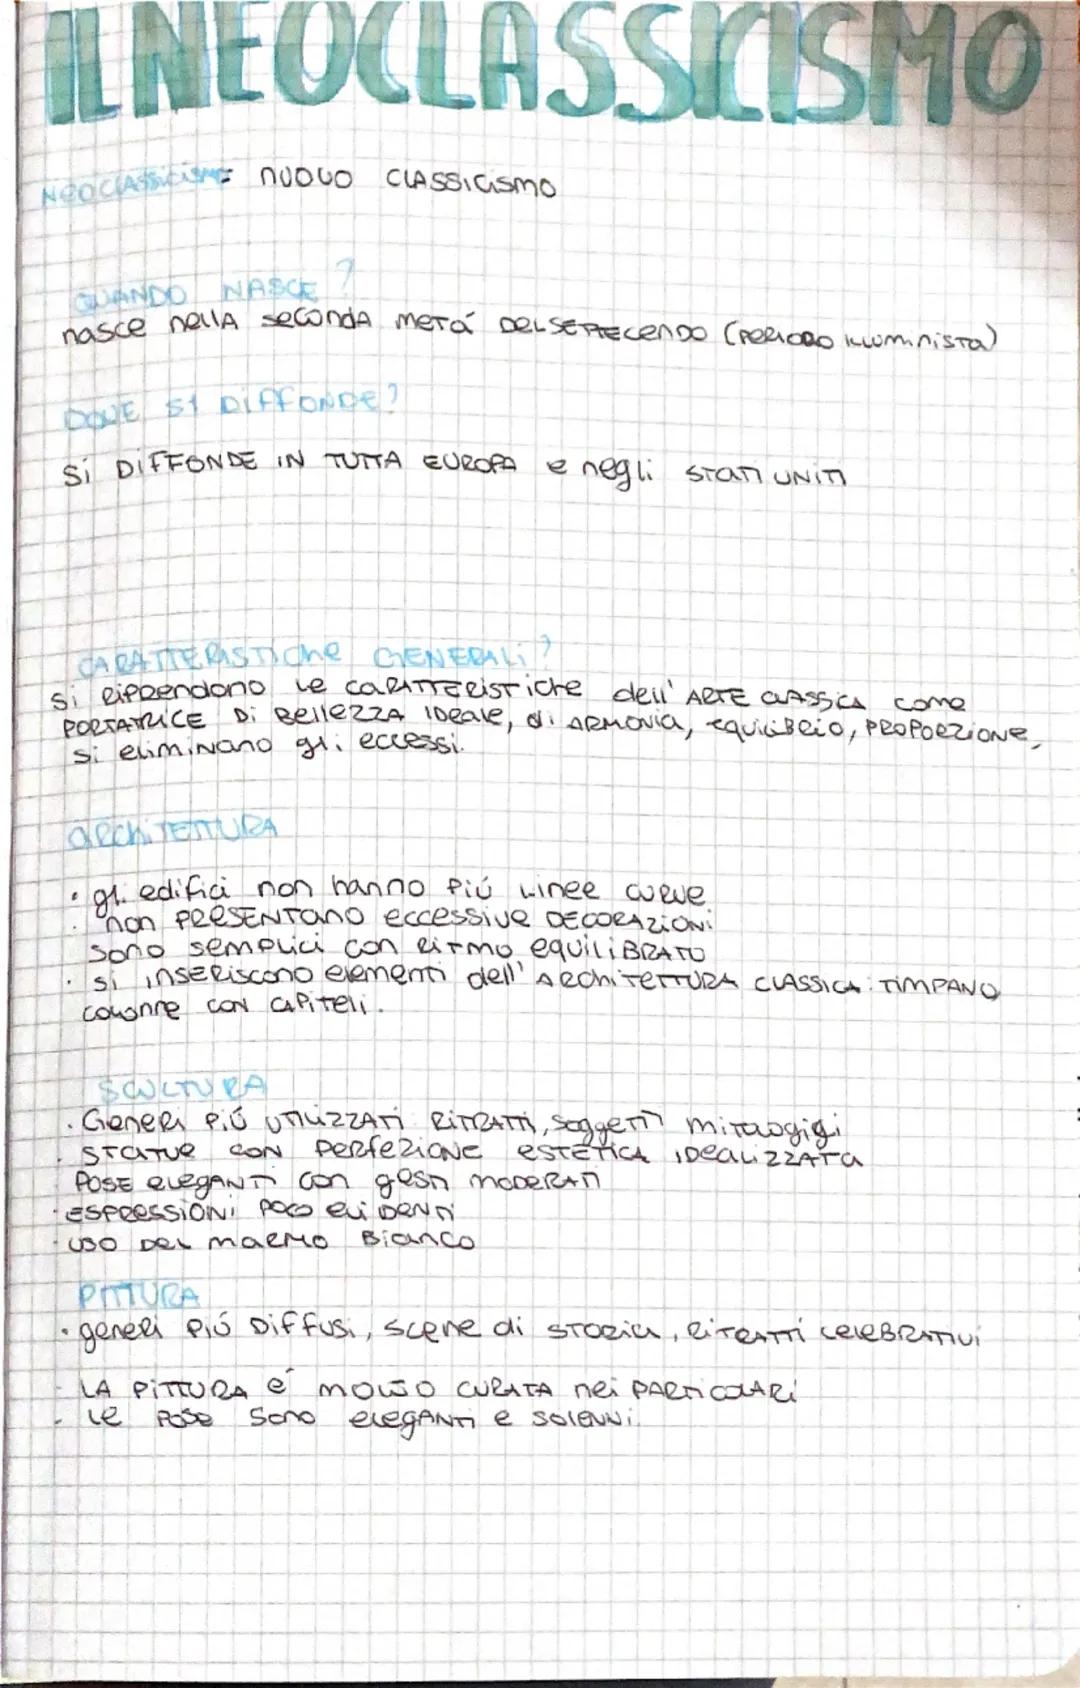 IL NEOCLASSICISMO
NEOCLASSICISMO: NUOVO CLASSICISMO
QUANDO NASCE?
nasce nella seconda metá DEL SETTECENDO (PERIODO ILLUMINISTA)
DOVE SI DIFFONDE?
Si DIFFONDE IN TUTTA EUROPA e negli STATI UNITI
CARATTERISTICHE GENERALI?
Si RIPRENDONO LE CARATTERISTICHE dell'ARTE CLASSICA COME
PORTATRICE DI BELLEZZA IDEALE, di ARMONIA, EQUILIBRIO, PROPORZIONE,
Si ELIMINANO gli eccessi.
ARCHITETTURA
· gli edifici non hanno Piú LINEE CURVE
· non PRESENTANO ECCESSIVE DECORAZIONI
SONO SEMPLICI CON RITMO EQUILIBRATO
· Si INSERISCONO elementi dell'ARCHITETTURA CLASSICA: TIMPANO
COLONNE CON CAPITELI.
SCULTURA
· GENERI PIÚ UTILIZZATI RITRATTI, Soggetti mitologigi
· STATUE CON PERFEZIONE ESTETICA IDEALIZZATA
POSE ELEGANTI CON gesti MODERATI
· ESPRESSIONI POCO EVIDENTI
· USO DEL MARMO BIANCO
PITTURA
· generi PIÚ DIFFUSI, scene di STORIA, RITRATTI CELEBRATIVI
- LA PITTURA É MOLTO CURATA nei PARTICOLARI
- LE POSE SONO ELEGANTI e SOLENNI.